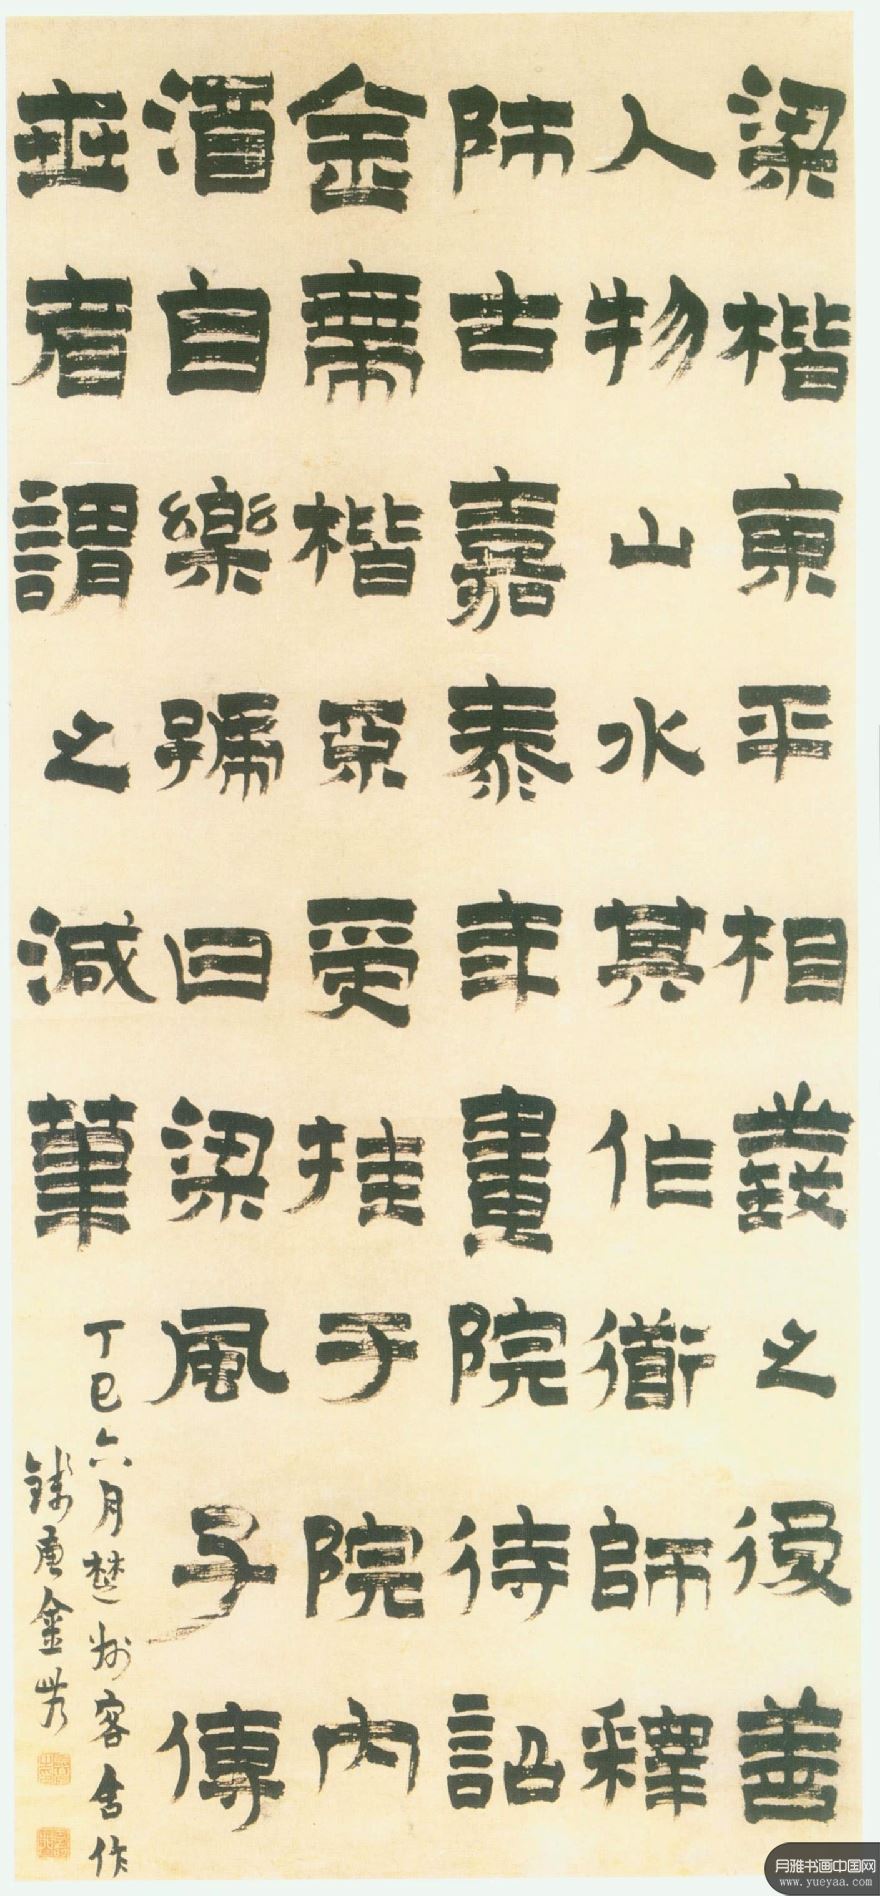 梁楷東平相義之後善
人物山水其作衟師釋
師古嘉泰年畫院待詔
金帶楷受挂于院內
酒自樂號曰梁風子傳
世者謂之減筆
丁巳六月楚州客舍作
錢唐金農
月雅书画中国网
www.yueyaa.com